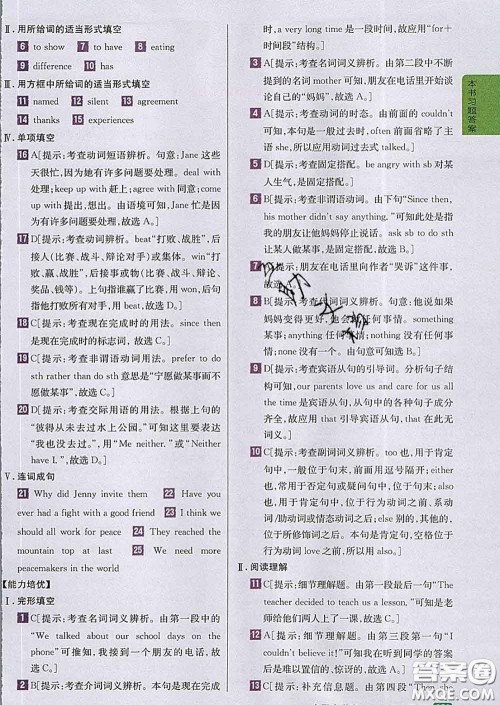 Ⅱ. 用所给词的适当形式填空
6 to show 7 to have 8 eating
9 difference 10 has
Ⅲ. 用方框中所给词的适当形式填空
11 named 12 silent 13 agreement
14 thanks 15 experiences
Ⅳ. 单项填空
16 A[提示:考查动词短语辨析。句意:Jane 这些
天很忙,因为她有许多问题要处理。deal with
处理;keep up with 赶上;agree with 同意;come
up with 提出,想出。由语境可知,Jane 忙是因
为有许多问题要处理,故选 A。]
17 D[提示:考查动词辨析。beat“打败、战胜”,
后接对手(比赛、战斗、辩论对手)或集体。win
“打败、战胜”,后接事或物(比赛、战斗、辩论、
奖品、钱等)。上句指谁赢了比赛,用 won,后句
指他打败所有对手,用 beat,故选 D。]
18 C[提示:考查现在完成时的用法。since then
是现在完成时的标志词,故选 C。]
19 C[提示:考查非谓语动词用法。prefer to do
sth rather than do sth 意思是“宁愿做某事而不
愿做某事”,故选 C。]
20 D[提示:考查交际用语的用法。根据上句的
“彼得从未去过水上公园。”可知,下句句意为
“我也没去过”,用“Me neither. ”或“Neither
have I. ”,故选 D。]
Ⅴ. 连词成句
21 Why did Jenny invite them 22 Have you
ever had a fight with a good friend 23 I think we
should all work for peace 24 They reached the
mountain top at last 25 We need more
peacemakers in the world
【能力培优】
Ⅰ. 完形填空
1 C[提示:考查名词词义辨析。由第一段中的
“We talked about our school days on the
phone”可推知,我接到一个朋友的电话,故
选 C。]
2 B[提示:考查介词词义辨析。本句是现在完成
时,a very long time 是一段时间,故应用“for+
时间段”结构。]
3 A[提示:考查名词词义辨析。由第二段中不断
提到的名词 mother 可知,朋友在电话里开始谈
论自己的“妈妈”,故选 A。]
4 C[提示:考查动词的时态。由前面的 couldn't
可知,本句是一般过去时,often 前面省略了主
语 she,所以应用动词过去式 talked。]
5 C[提示:考查固定搭配。be angry with sb 对某
人生气,是固定搭配,故选 C。]
6 B[提示:考查非谓语动词。由下句“Since then,
his mother didn't say anything, ”可知此处是指
我的朋友让他妈妈停止说话。ask sb to do sth
让某人做某事,是固定搭配,故选 B。]
7 [提示:朋友在电话里向作者“哭诉”这件事,
故选
8 B[提示:考查代词词义辨析。句意:他说如果
妈妈变得更好,他会 任何事情。something
某事;anything 任何事情;nothing 没有任何事
情;none 没有。由句意可知选 B。]
9 D[提示:考查宾语从句的引导词。分析句子结
构可知,our parents love us and care for us all
the time 是宾语从句,且从句中各成分都不缺
少,故应用“that”引导宾语从句,that 在此处无
词义。]
10 C[提示:考查副词词义辨析。too 也,用于肯定
句中,一般位于句末,前面用逗号隔开;either
也,用于否定句或疑问句中,位于句末;also
也,用于肯定句中,位于行为动词之前、系动
词/助动词或情态动词之后;else 别的,其他的,
位于所修饰词之后。本句是肯定句,空格位于
行为动词之前,故选 C。]
Ⅱ. 阅读理解
11 C[提示:细节理解题。由第一段最后一句“The
teacher decided to teach us a lesson. ”可知是老
师给他们两人上了一课,故选 C。]
12 A[提示:细节理解题。由第三段第一句“I
couldn't believe it!”可知我在听到同学的答案
当后是难以置信的,惊讶的,故选 A。]
13 C[提示:补充信息题。由第四段“Then she
本书习题答案
答案圈